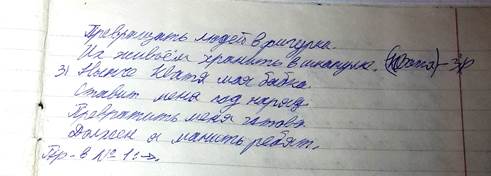 Превращать людей в фигурки.
Их живьём хранить в шкатулке. (Катя) - Зр
3) Нынче Катя моя бабка.
Ставит меня под наряд.
Превратить меня готова.
Должен я манить ребят.
Пр-в № 1: